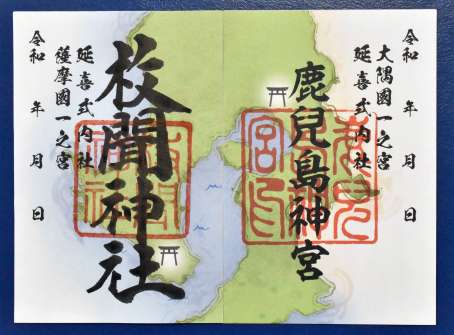 令和 年 月 日
大隅國一之宮
延喜式内社
鹿兒島神宮
枚聞神社
延喜式内社
薩摩國一之宮
令和 年 月 日